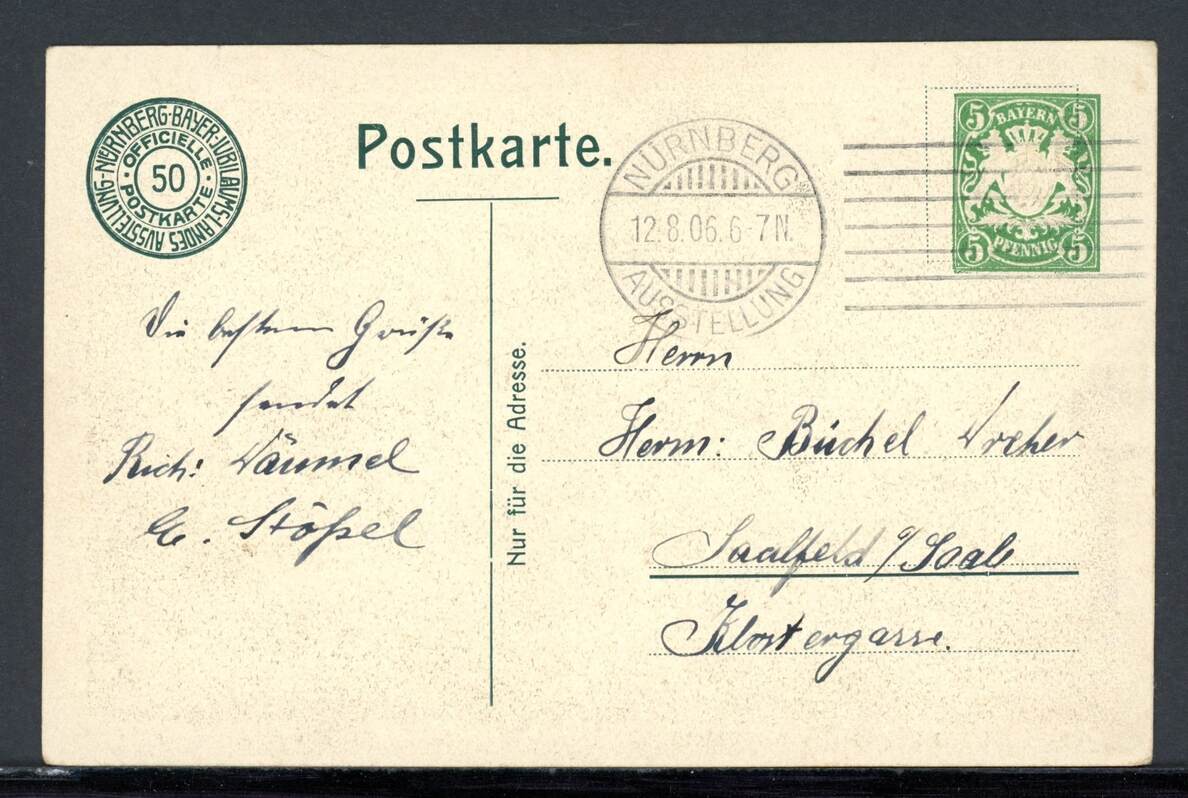 NÜRNBERG·BAYER·JUBILÄUMS LANDES AUSSTELLUNG·
OFFICIELLE · POSTKARTE ·
50
Postkarte.
NÜRNBERG
12.8.06.6-7N.
AUSSTELLUNG
5 BAYERN 5
5 PFENNIG 5
Die besten Grüße
sendet
Rich:
E. Stößel
Nur für die Adresse.
Herrn
Herm: Büchel Dreher
Saalfeld a/Saale
Klostergasse.